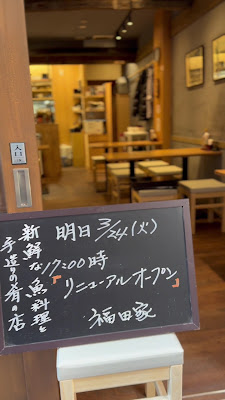 入口
明日3/24(火)
17:00時
「リニューアルオープン」
福田家
新鮮な魚料理と
手造りの肴の店